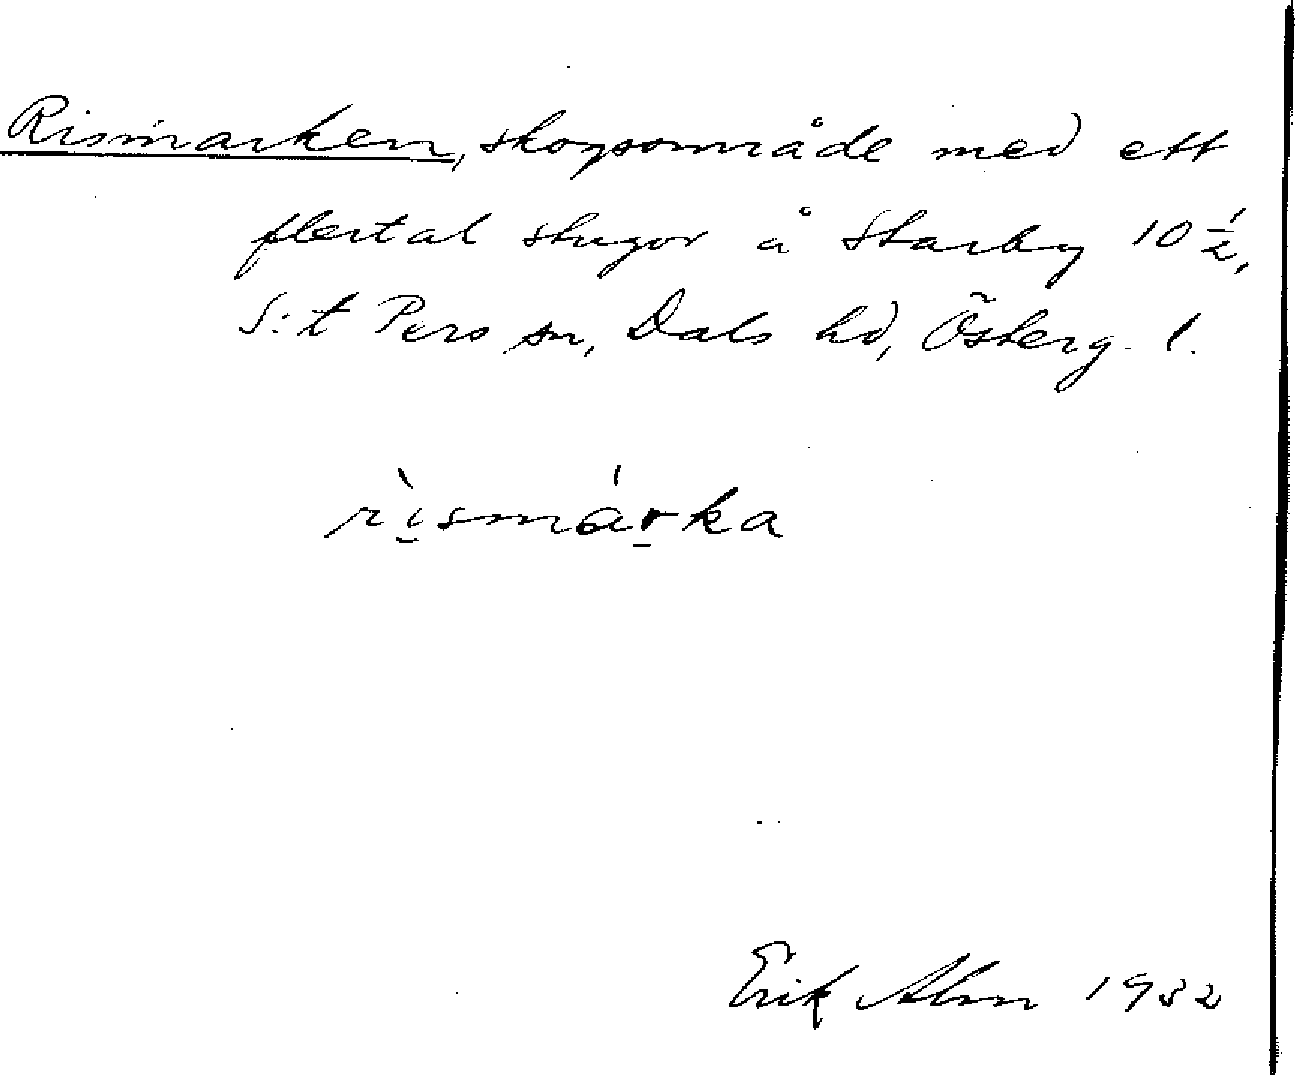 Rismarken, skogsområde med ett
flertal stugor å Starby 10 ½,
S:t Pers sn, Dals hd, Österg. l.
rismarka
Erik Alm 1932